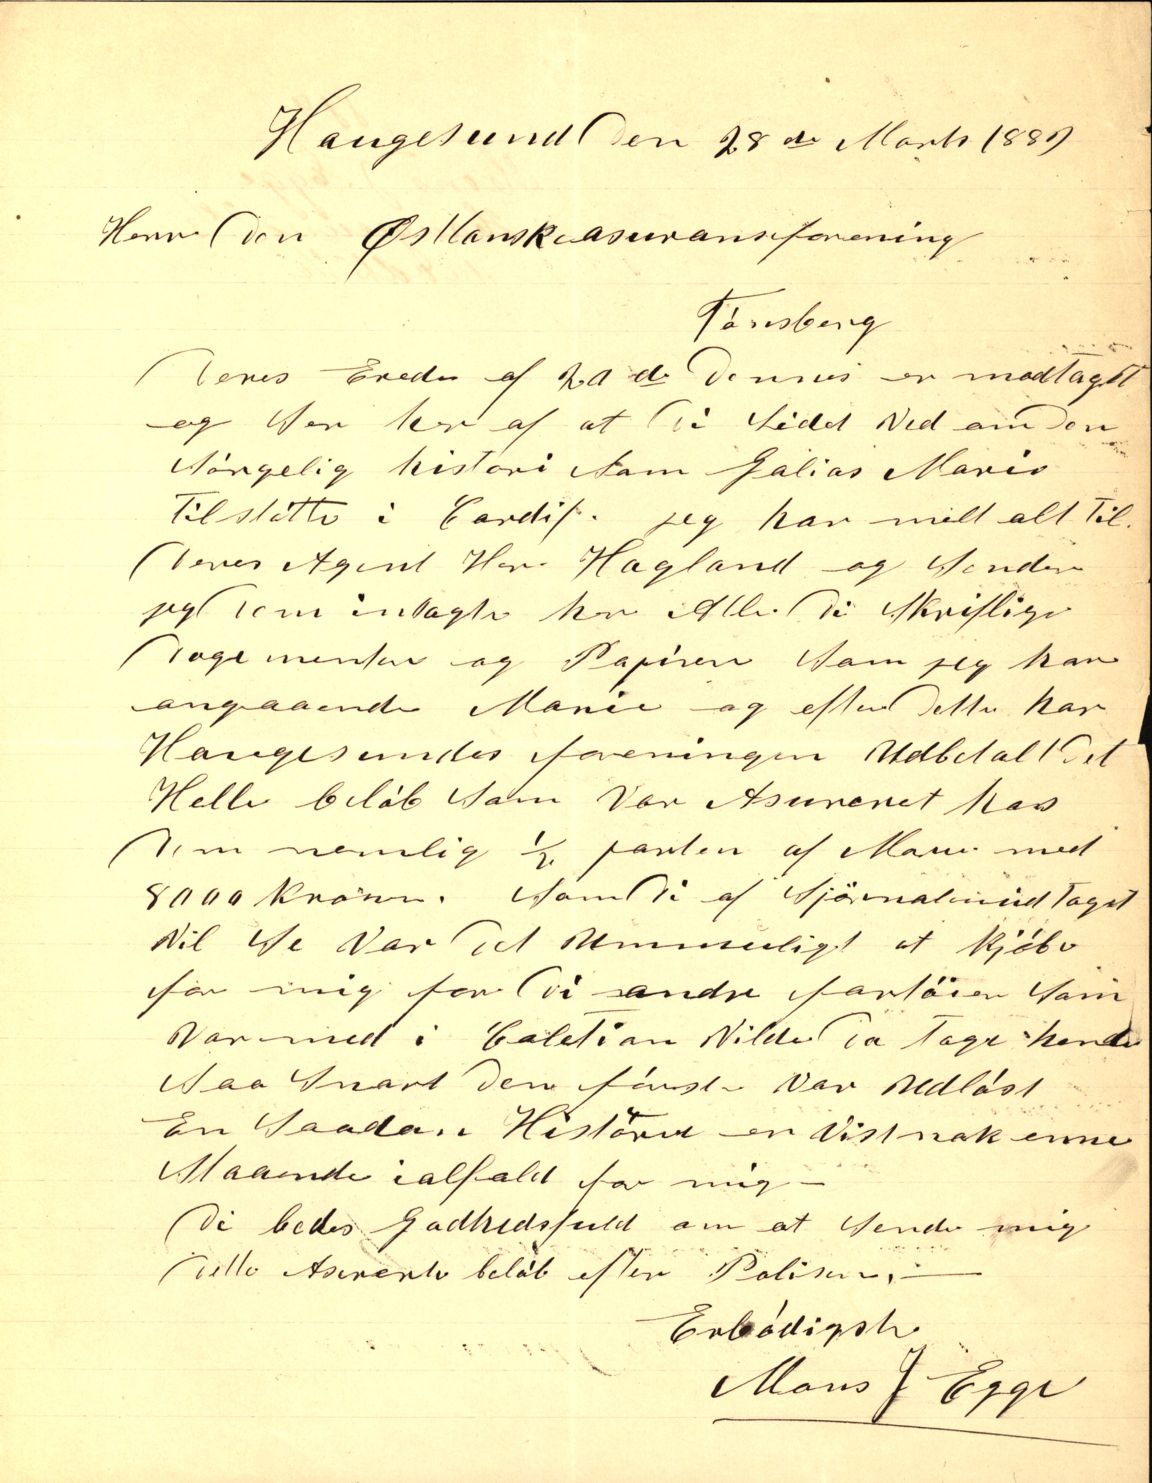 Haugesund den 28de Marts 1889
Herr den Østlanske asuransforening
Tönsberg
Deres Erede af 20de Dennes er modtaget
og Ser her af at Di Sidet Ved om den
Sörgelig histori Som Galias Marie
Tilstötte i Cardif. jeg har melt alt Til.
Deres Agent Her Hagland og Sender
jeg Dem indlagte her Alle Di Skriflige
Dogementer og Papirer Som jeg har
angaaende Marie og efter dette har
Haugesundes foreningen Udbetalt Det
Helle belöb Som Var Asureret hos
Dem nemlig 1/2 parten af Marie med
8000 Kroner. Som Di af Sjörnalenudtaget
Vil Se Var Det Ummueligt at Kjöbe
for mig for Di andre fartöier Som
Var med i Coletion Vilde Da Tage hende
Saa Snart Den förste Var Udlöst
En Saadan Histörie er Vist nok enne
Staaende ialfald for mig —
Di bedes Godhedsfuld om at Sende mig
dette Asurerte belöb efter Polisen. —
Erbödigste
Mons J Egge